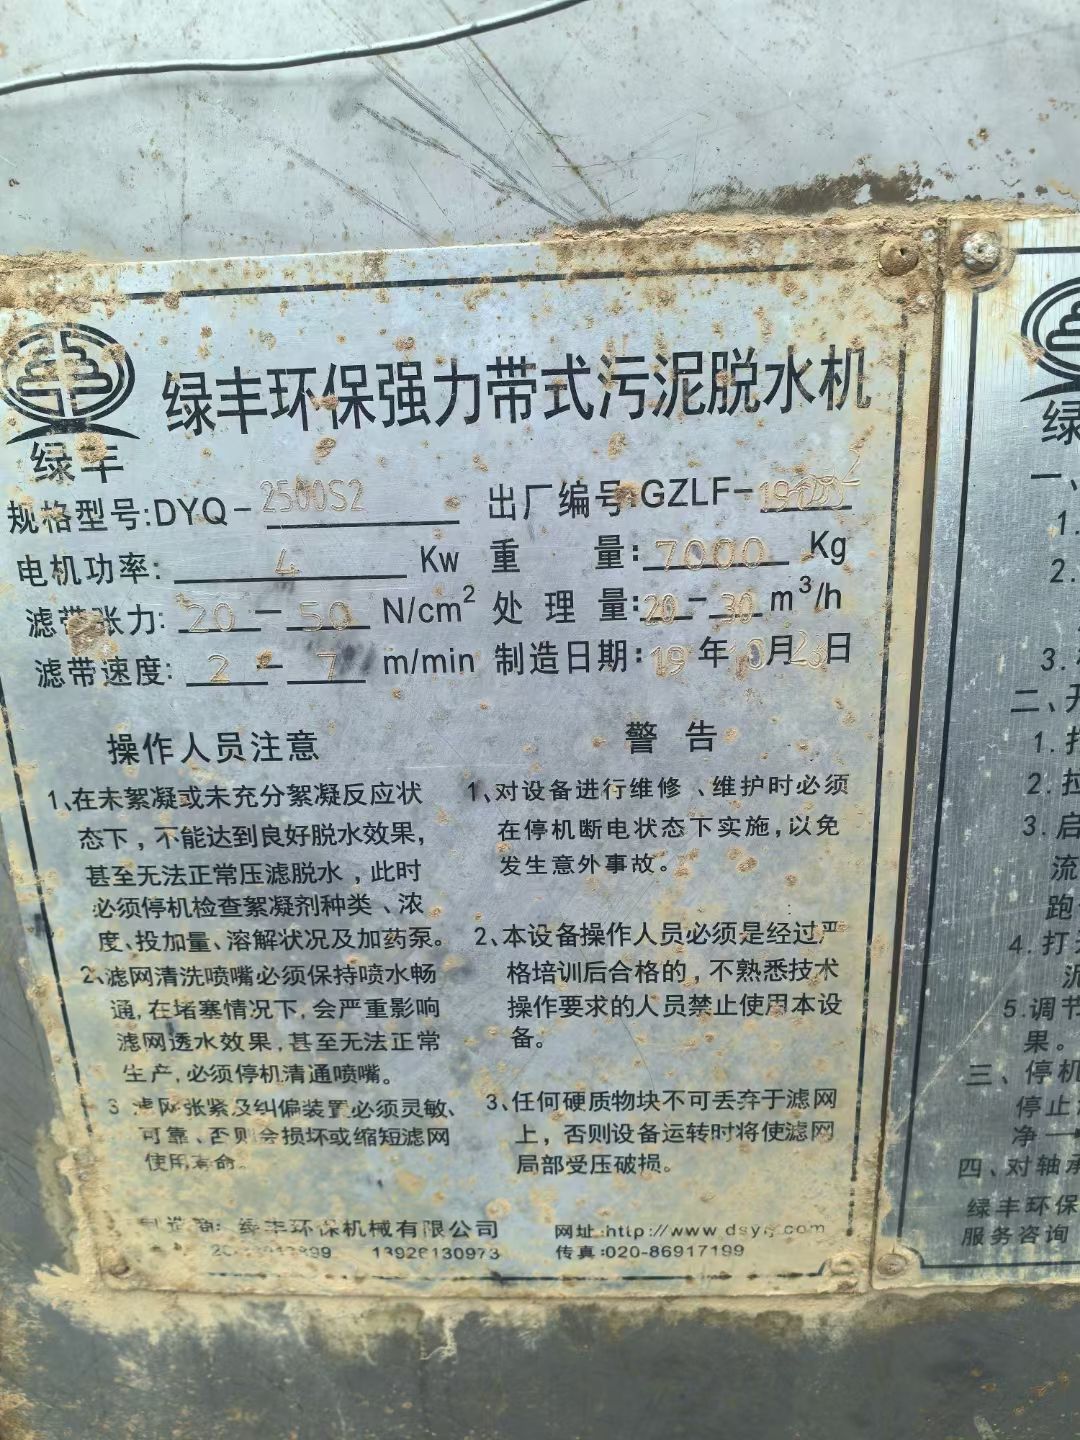 绿丰环保强力带式污泥脱水机
绿丰
规格型号:DYQ-2500S2
出厂编号:GZLF-
电机功率: 4 Kw
重 量: 7000 Kg
滤带张力: 20-50 N/cm²
处 理 量: 20-30 m³/h
滤带速度: 2-7 m/min
制造日期: 19年10月23日
操作人员注意
1、在未絮凝或未充分絮凝反应状
态下，不能达到良好脱水效果，
甚至无法正常压滤脱水，此时
必须停机检查絮凝剂种类、浓
度、投加量、溶解状况及加药泵。
2、滤网清洗喷嘴必须保持喷水畅
通,在堵塞情况下,会严重影响
滤网透水效果,甚至无法正常
生产,必须停机清通喷嘴。
3 滤网张紧及纠偏装置必须灵敏、
可靠、否则会损坏或缩短滤网
使用寿命。
警 告
1、对设备进行维修、维护时必须
在停机断电状态下实施,以免
发生意外事故。
2、本设备操作人员必须是经过严
格培训后合格的，不熟悉技术
操作要求的人员禁止使用本设
备。
3、任何硬质物块不可丢弃于滤网
上，否则设备运转时将使滤网
局部受压破损。
制造商: 绿丰环保机械有限公司
网址:http://www
13926130973
传真:020-86917199
绿
一、
1.
2.
3.
二、开
1.
2.拉
3.启
流
跑
4.打
泥
5.调节
果。
三、停机
停止
净一
四、对轴承
绿丰环保
服务咨询